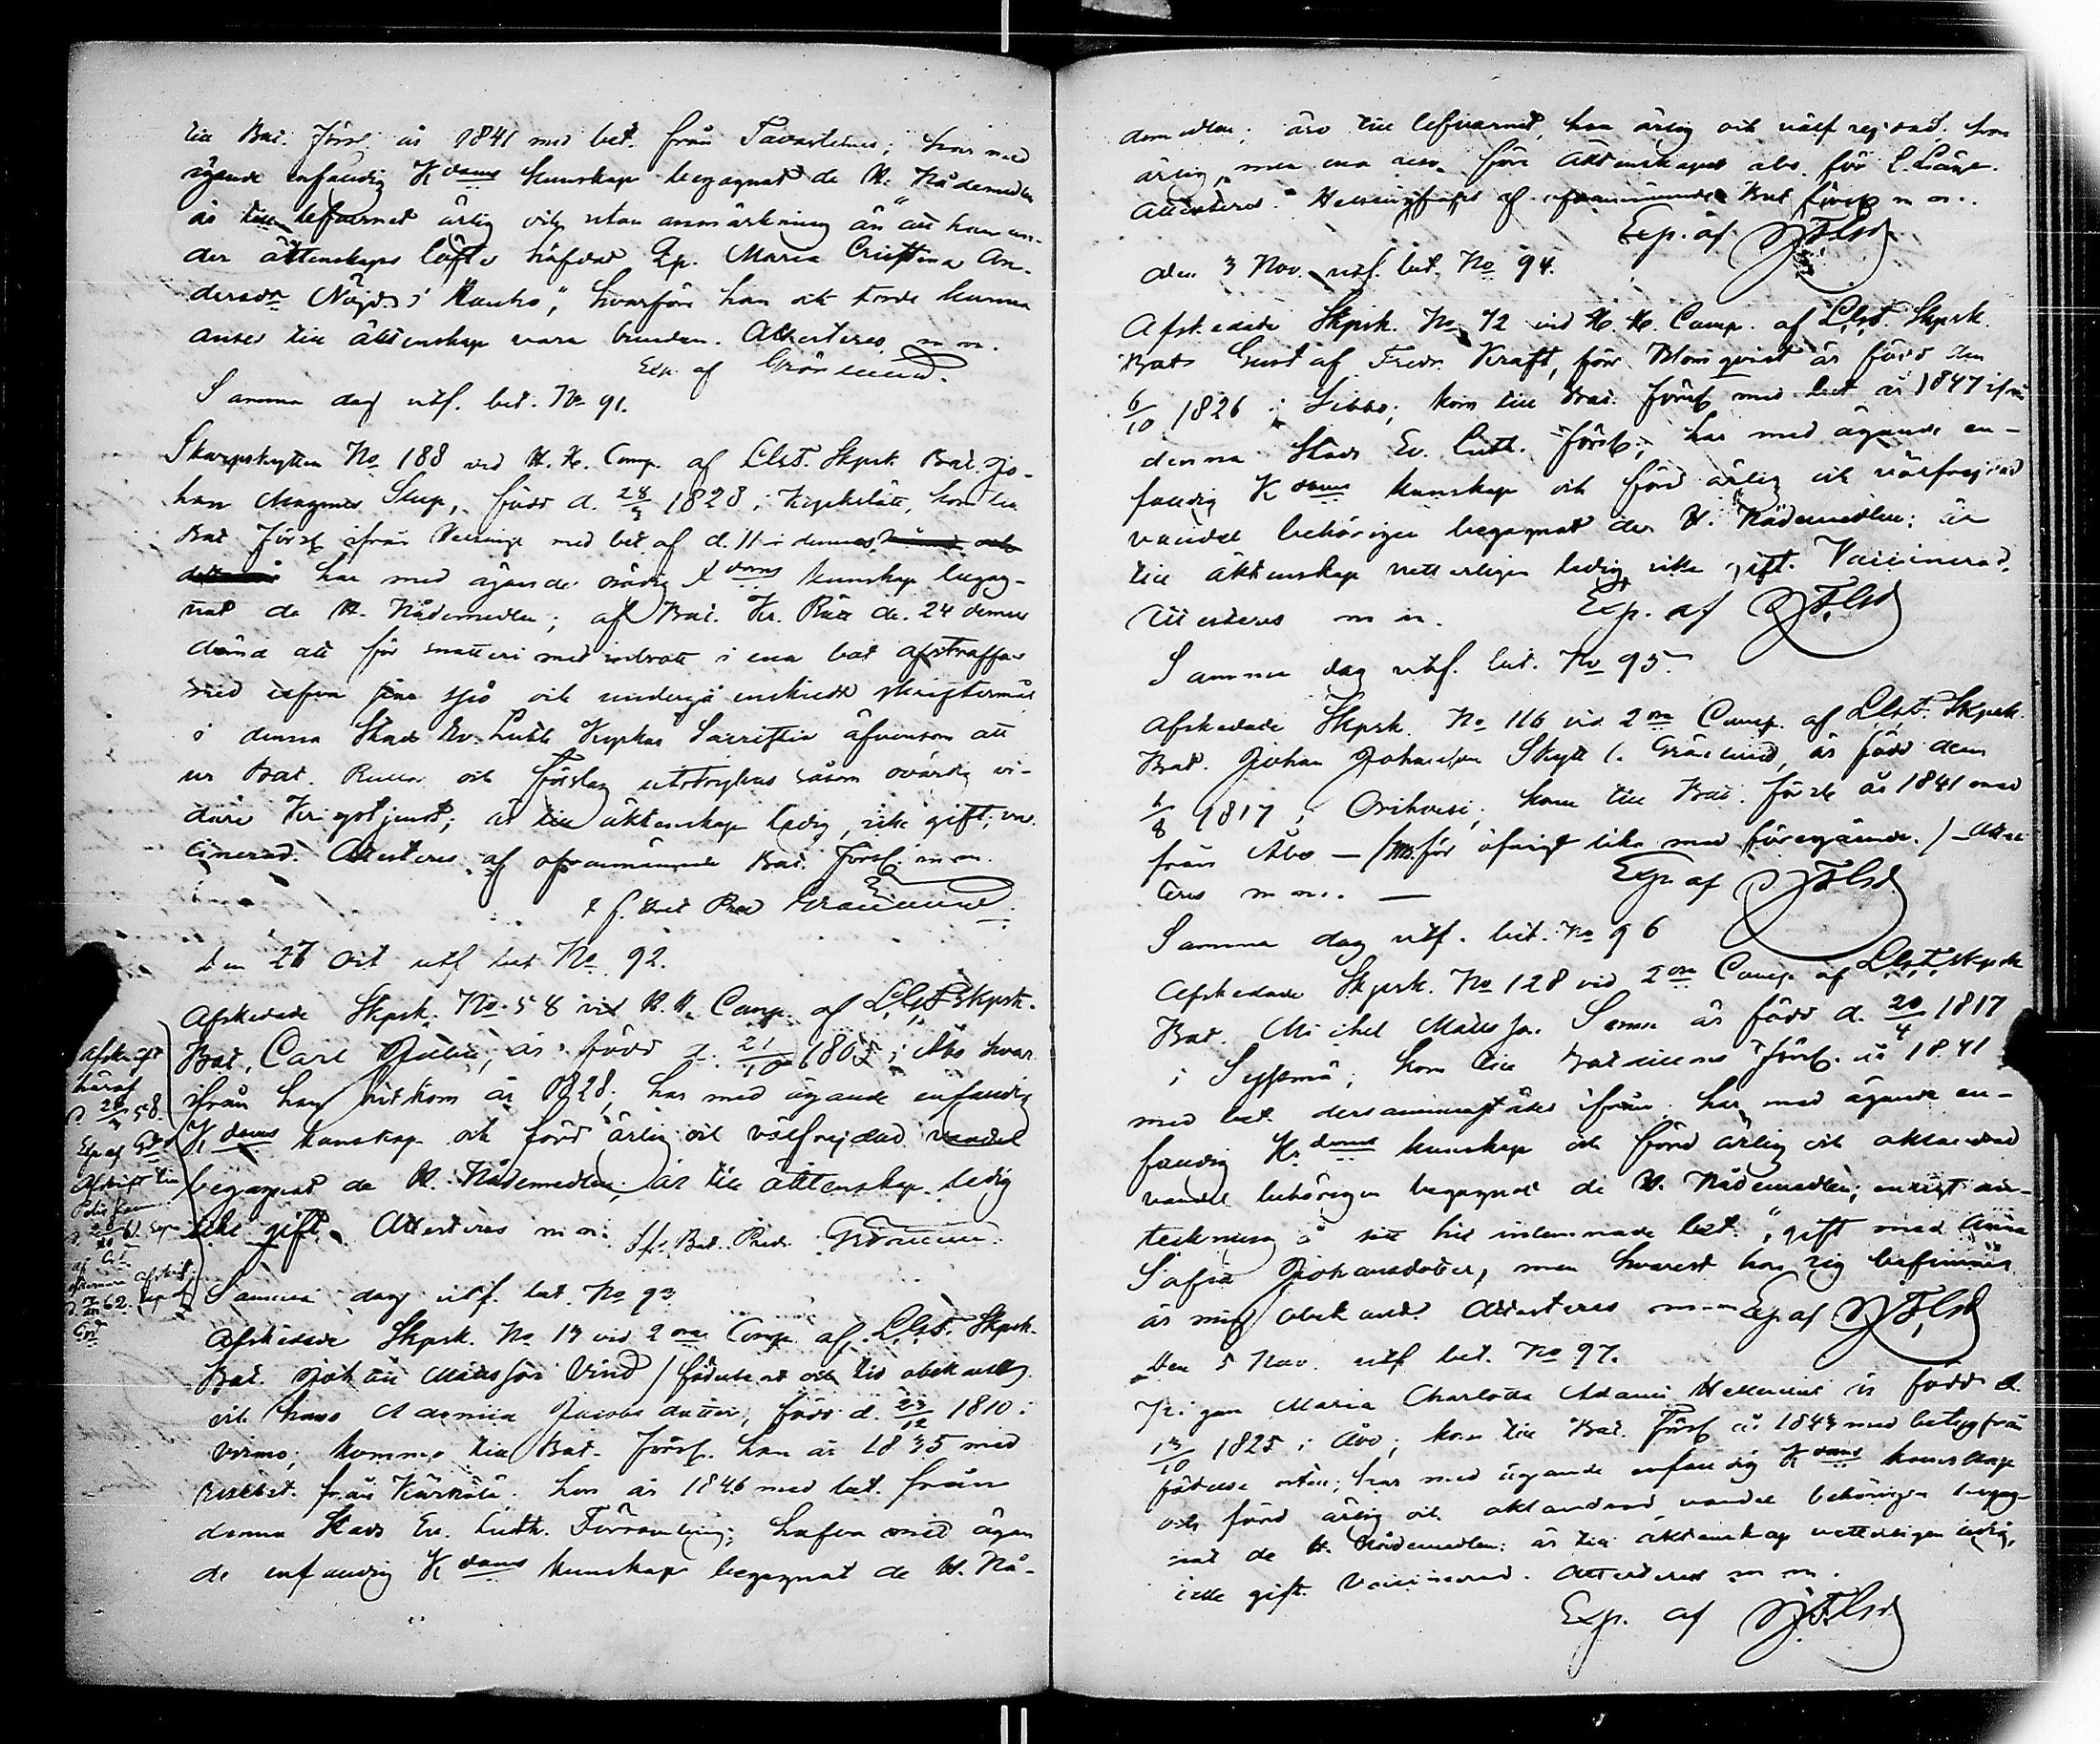 till Bat. Förs. år 1841 med bet. från Tavastehus; har med
ägande enfaldig Kdoms kunskap begagnat de H. Nådemedlen
är till lefvernet ärlig och utan anmärkning än "att han un-
der äktenskaps löfte häfdat Qp. Maria Cristina An-
dersdr Nöjd i Hauho", hvarföre han ock torde kunna
anses till äktenskap vara bunden. Attesteres m m.
Exp. af Grönlund.
Samma dag utf. bet. No 91.
Skarpskytten No 188 vid H. H. Comp. af Lls F. Skpsk. Bat. Jo-
han Magnus Skup, född d. 28/3 1828 i Kyrkslätt, kom till
Bat. Förs. ifrån Helsinge med bet. af d. 11 i dennes
har med ägande nödig Xdoms kunskap begag-
nat de H. Nådemedlen; af Bat. Kr. Rätt de. 24 dennes
dömd att för snatteri med inbrott i ena bod afstraffas
med spö och undergå enskildt skriftermål
i denna Stads Ev. Luth. Kyrkas Sacristia äfvensom att
ur Bat. Rulla och förslag utstrykas såsom ovärdig vi-
dare Krigstjenst; är till äktenskap ledig, icke gift; vac-
cinerad. Attesteres af ofvannämnde Bat. Förs. m m.
t f. Bat. Pred Grönlund.
den 27 Oct utf bet No 92.
Afskedade Skpsk. No 58 vid H. H. Comp. af Lls F. Skpsk.
Bat. Carl Julin, är född d. 21/10 1805 i Åbo hvar-
ifrån han hitkom år 1828; har med ägande enfaldig
Kdoms kunskap och förd ärlig och välfrejdad vandel
begagnat de H. Nådemedlen; är till äktenskap ledig
icke gift. Attesteres m m. t f. Bat. Pred. Grönlund.
Afskrift
häraf
Exp af
Afskrift till
Samma dag utf. bet. No 93
Afskedade Skpsk. No 13 vid 2ne Comp. af Lls F. Skpsk.
Bat. Johan Mattsson Vind / födelseort och tid obekant /
och hans Adamia Jacobsdotter, född d. 23/12 1810 i
Virmo; kommo till Bat. Förs. han år 1835 med
från Kärkölä. hon år 1846 med bet. från
denna Stads Ev. Luth. Församling; hafva med ägan
de enfaldig Kdoms kunskap begagnat de H. Nå-
demedlen; äro till lefvernet, han ärlig och välfrejdad. hon
ärlig, men före äktenskapet abs. för L. Läge.
Attesteres. Helsingfors af ofvannämnde Bat. förs. m m.
Exp. af
den 3 Nov. utf. bet. No 94.
Afskedade Skpsk. No 72 vid H. H. Comp. af Lls F. Skpsk.
Bat. Gustaf Fredr. Kraft, förr Blomqvist är född den
6/10 1826 i Sibbo; kom till Bat. Förs. med bet år 1847 ifrån
denna Stads Ev. Luth. förs.; har med ägande en-
faldig Kdoms kunskap och förd ärlig och välfrejdad
vandel behörigen begagnat de H. Nådemedlen; är
till äktenskap vetterligen ledig icke gift. Vaccinerad.
Attesteres m m. Exp. af
Samma dag utf. bet. No 95
Afskedade Skpsk. No 116 vid 2ne Comp. af Lls F. Skpsk.
Bat. Johan Johansson Skytt l. Grönlund, är född den
/8 1817 i Orihvesi; kom till Bat. förs. år 1841 med
från Åbo — / för öfrigt lika med föregående. / — Attes-
teres m m. — Exp af
Samma dag utf. bet. No 96
Afskedade Skpsk. No 128 vid 2ne Comp. af Lls F. Skpsk
Bat. Michel Mattsson är född d. 20/4 1817
i Sysmä; kom till Bataillons förs. år 1841
med bet. dersammastädes ifrån; har med ägande en-
faldig Kr.doms kunskap och förd ärlig och oklandrad
vandel behörigen begagnat de H. Nådemedlen; enligt an-
teckning å sitt hit inlemnade bet. "gift med Anna
Sofia Johansdotter, men hvarest hon sig befinner
är mig obekant". Attesteres m m Exp af
Den 5 Nov. utf bet. No 97.
Pigan Maria Charlotta Adamsdr Hellenius är född d.
13/10 1825 i Åbo; kom till Bat. Förs år 1843 med betyg från
födelse orten; har med ägande enfaldig Kdoms kunskap
och förd ärlig och oklandrad vandel behörigen begag-
nat de H. Nådemedlen: är till äktenskap vetterligen ledig,
icke gift. Vaccinerad. Attesteres m m.
Exp. af